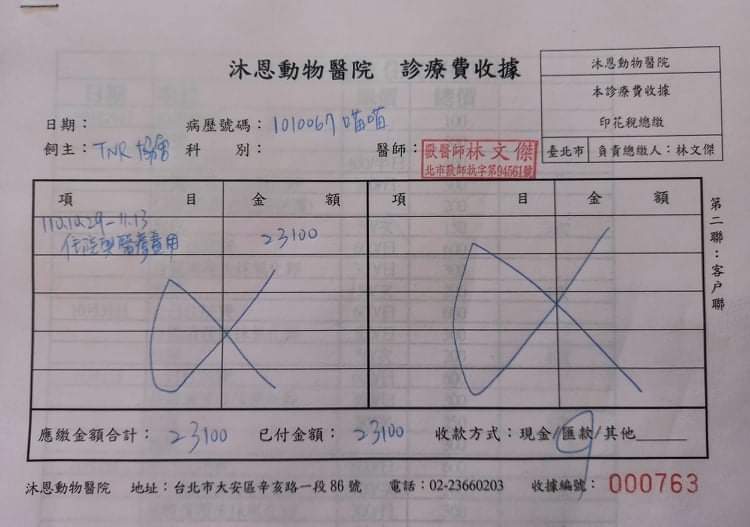 沐恩動物醫院 診療費收據
沐恩動物醫院
本診療費收據
印花稅總繳
臺北市 負責總繳人：林文傑
日期： 病歷號碼：1010067 喵喵
飼主：TNR 協會 科別： 醫師：獸醫師林文傑
北市獸師執字第94561號
項目 金額 項目 金額
110.10.29-11.13
住院與醫療費用 23100
第二聯：客戶聯
應繳金額合計：23100 已付金額：23100 收款方式：現金/匯款/其他
沐恩動物醫院 地址：台北市大安區辛亥路一段86號 電話：02-23660203 收據編號：000763